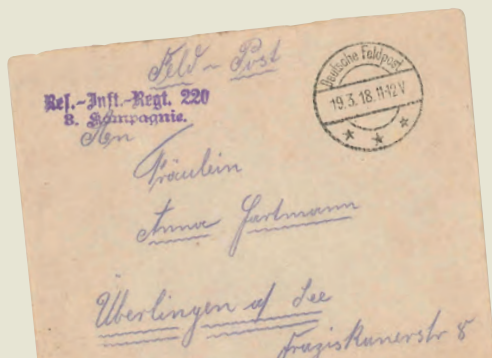 Feld - Post
Deutsche Feldpost
19.3.18.11-12V
Res.-Inft.-Regt. 220
8. Kompagnie.
An
Fräulein
Anna Hartmann
Überlingen a/ See
Franziskanerstr 8